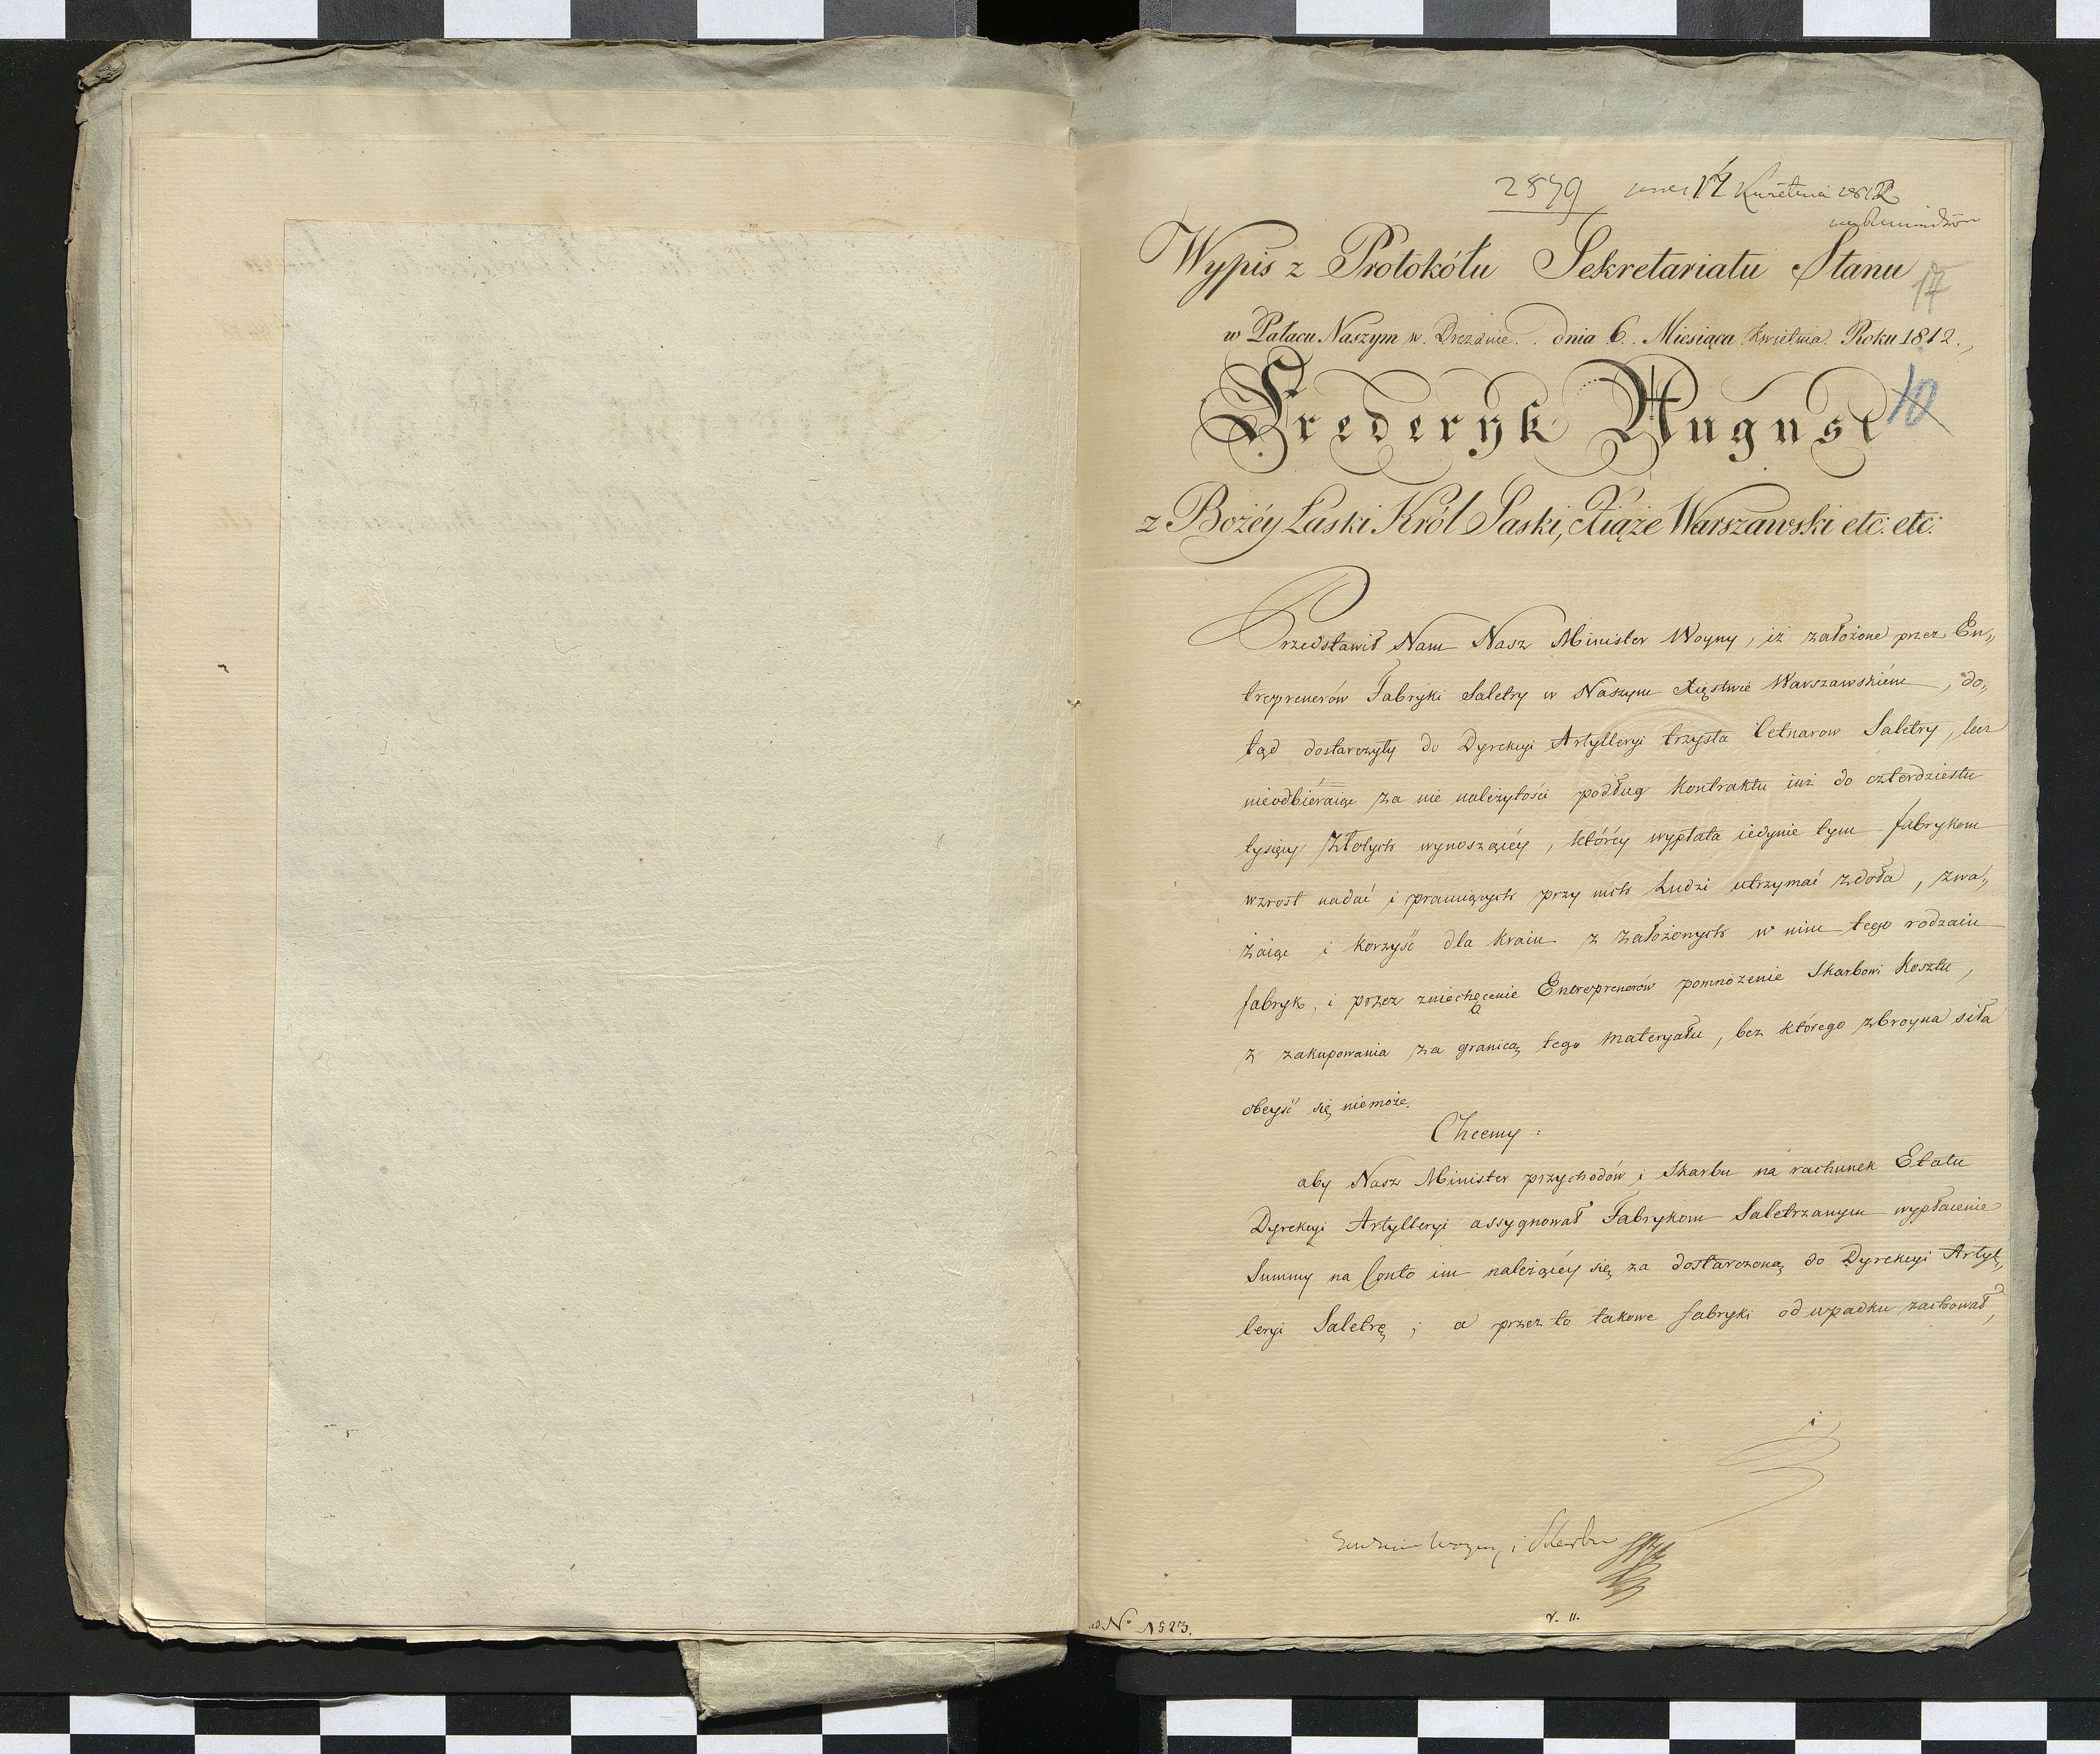 2879 17 Kwietnia 1812
Wypis z Protokółu Sekretariatu Stanu
17
w Pałacu Naszym w. Dreznie. . dnia 6. Miesiąca Kwietnia. Roku 1812.
Frederyk August
10
z Bożéy Łaski Król Saski, Xiąże Warszawski etc: etc:
Przedstawił Nam Nasz Minister Woyny, iż założone przez En„
treprenerów Fabryki Saletry w Naszym Xięstwie Warszawskiém, do„
tąd dostarczyły do Dyrekcyi Artylleryi trzysta Cetnarow Saletry, lecz
nieodbiéraiąc za nie należytości podług Kontraktu iuż do czterdziestu
tysięcy Złotych wynoszącéy, któréy wypłata iedynie tym fabrykom
wzrost nadać i pracuiących przy nich Ludzi utrzymać zdoła, zwa„
żaiąc i korzyść dla Kraiu z założonych w nim tego rodzaiu
fabryk, i przez zniechęcenie Entreprenerów pomnożenie Skarbowi Kosztu,
z zakupowania za granicą tego materyału, bez którego zbroyna siła
obeyść się niemoże.
Chcemy:
aby Nasz Minister przychodów i Skarbu na rachunek Etatu
Dyrekcyi Artylleryi assygnował Fabrykom Saletrzanym wypłacenie
Summy na Conto im należącéy się za dostarczoną do Dyrekcyi Artyl„
leryi Saletrę; a przez to takowe fabryki od upadku zachował,
i
Woyny i Skarbu
ad No 1523.
v. 11.